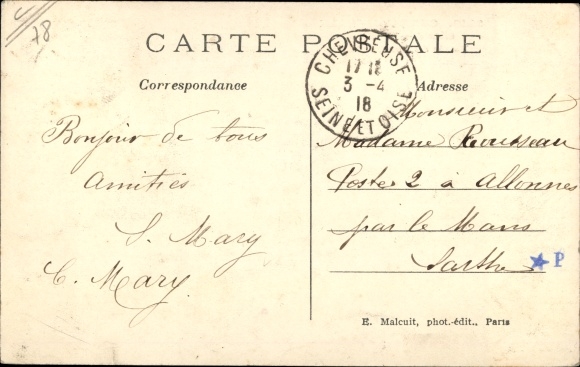 78
CARTE POSTALE
CHEVREUSE
17 15
3 - 4
18
SEINE ET OISE
Correspondance
Adresse
Bonjour de tous
Amitiés
S. Mary
C. Mary
Monsieur et
Madame Rousseau
Poste 2 à Allonnes
par le Mans
Sarthe
P
E. Malcuit, phot.-édit., Paris